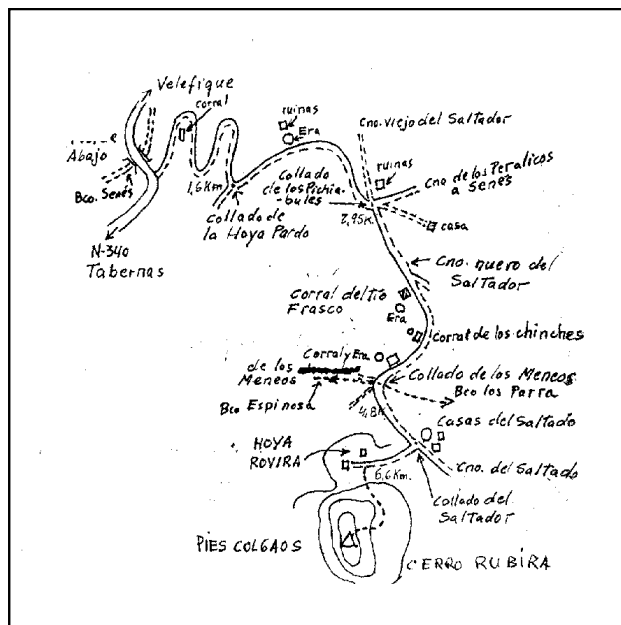 Velefique
corral
Abajo
Bco. Senés
1,6Km.
N-340
Tabernas
ruinas
Era
Collado de
la Hoya Pardo
Collado
de los Pichia-
bules
2,95K.
Cno. Viejo del Saltador
ruinas
Cno de los Peralicos
a Senés
casa
Cno. nuevo del
Saltador
Corral del tio
Frasco
Era
Corral de los chinches
Corral y Era
de los
Meneos
Bco Espinosa
Collado de los Meneos
Bco los Parra
4,8K
Casas del Saltado
HOYA
ROVIRA
6,6Km.
Cno. del Saltado
Collado del
Saltador
PIES COLGAOS
CERRO RUBIRA